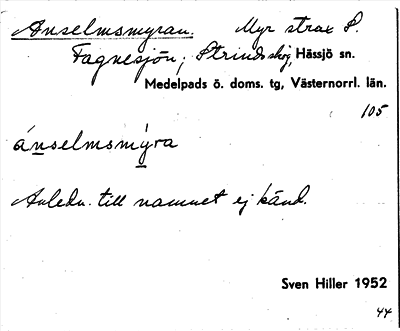 Anselmsmyran. Myr strax S.
Fagnesjön, Strindsskog, Hässjö sn.
Medelpads ö. doms. tg, Västernorrl. län.
105
ánselmsmỳra
Anledn. till namnet ej känd.
Sven Hiller 1952
44